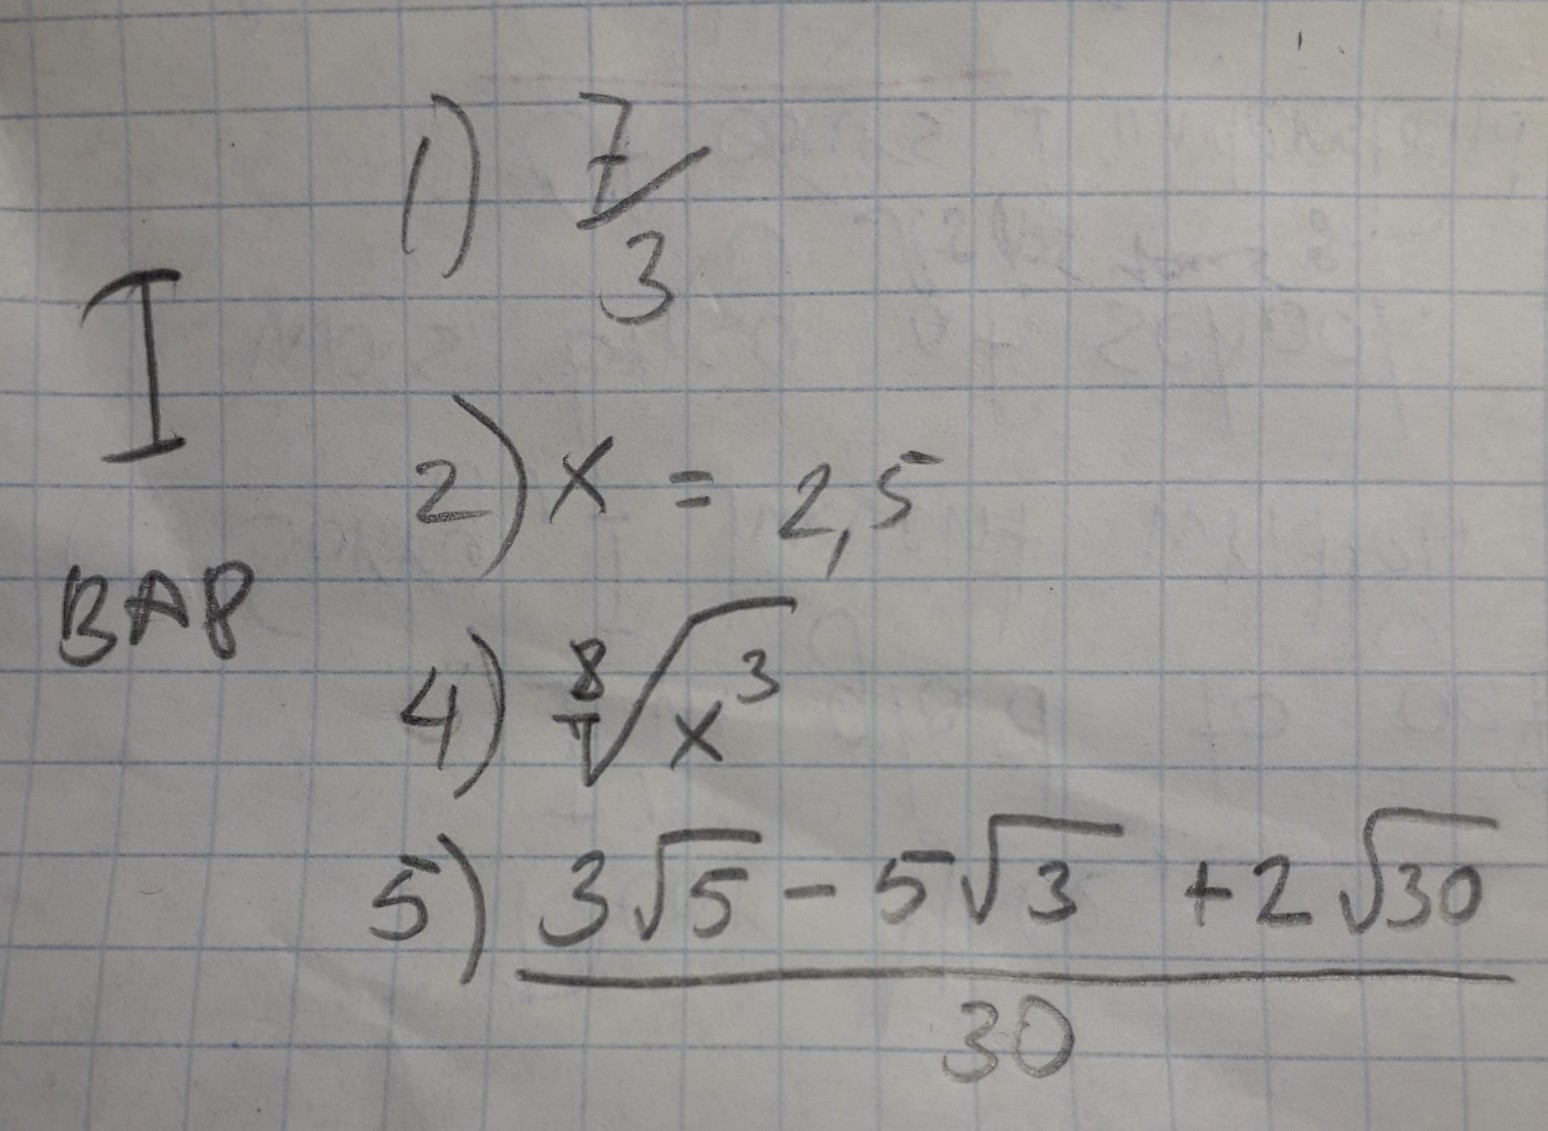 I
ВАР
1) 7/3
2) x = 2,5
4) ⁸√x³
5) (3√5 - 5√3 + 2√30)/30